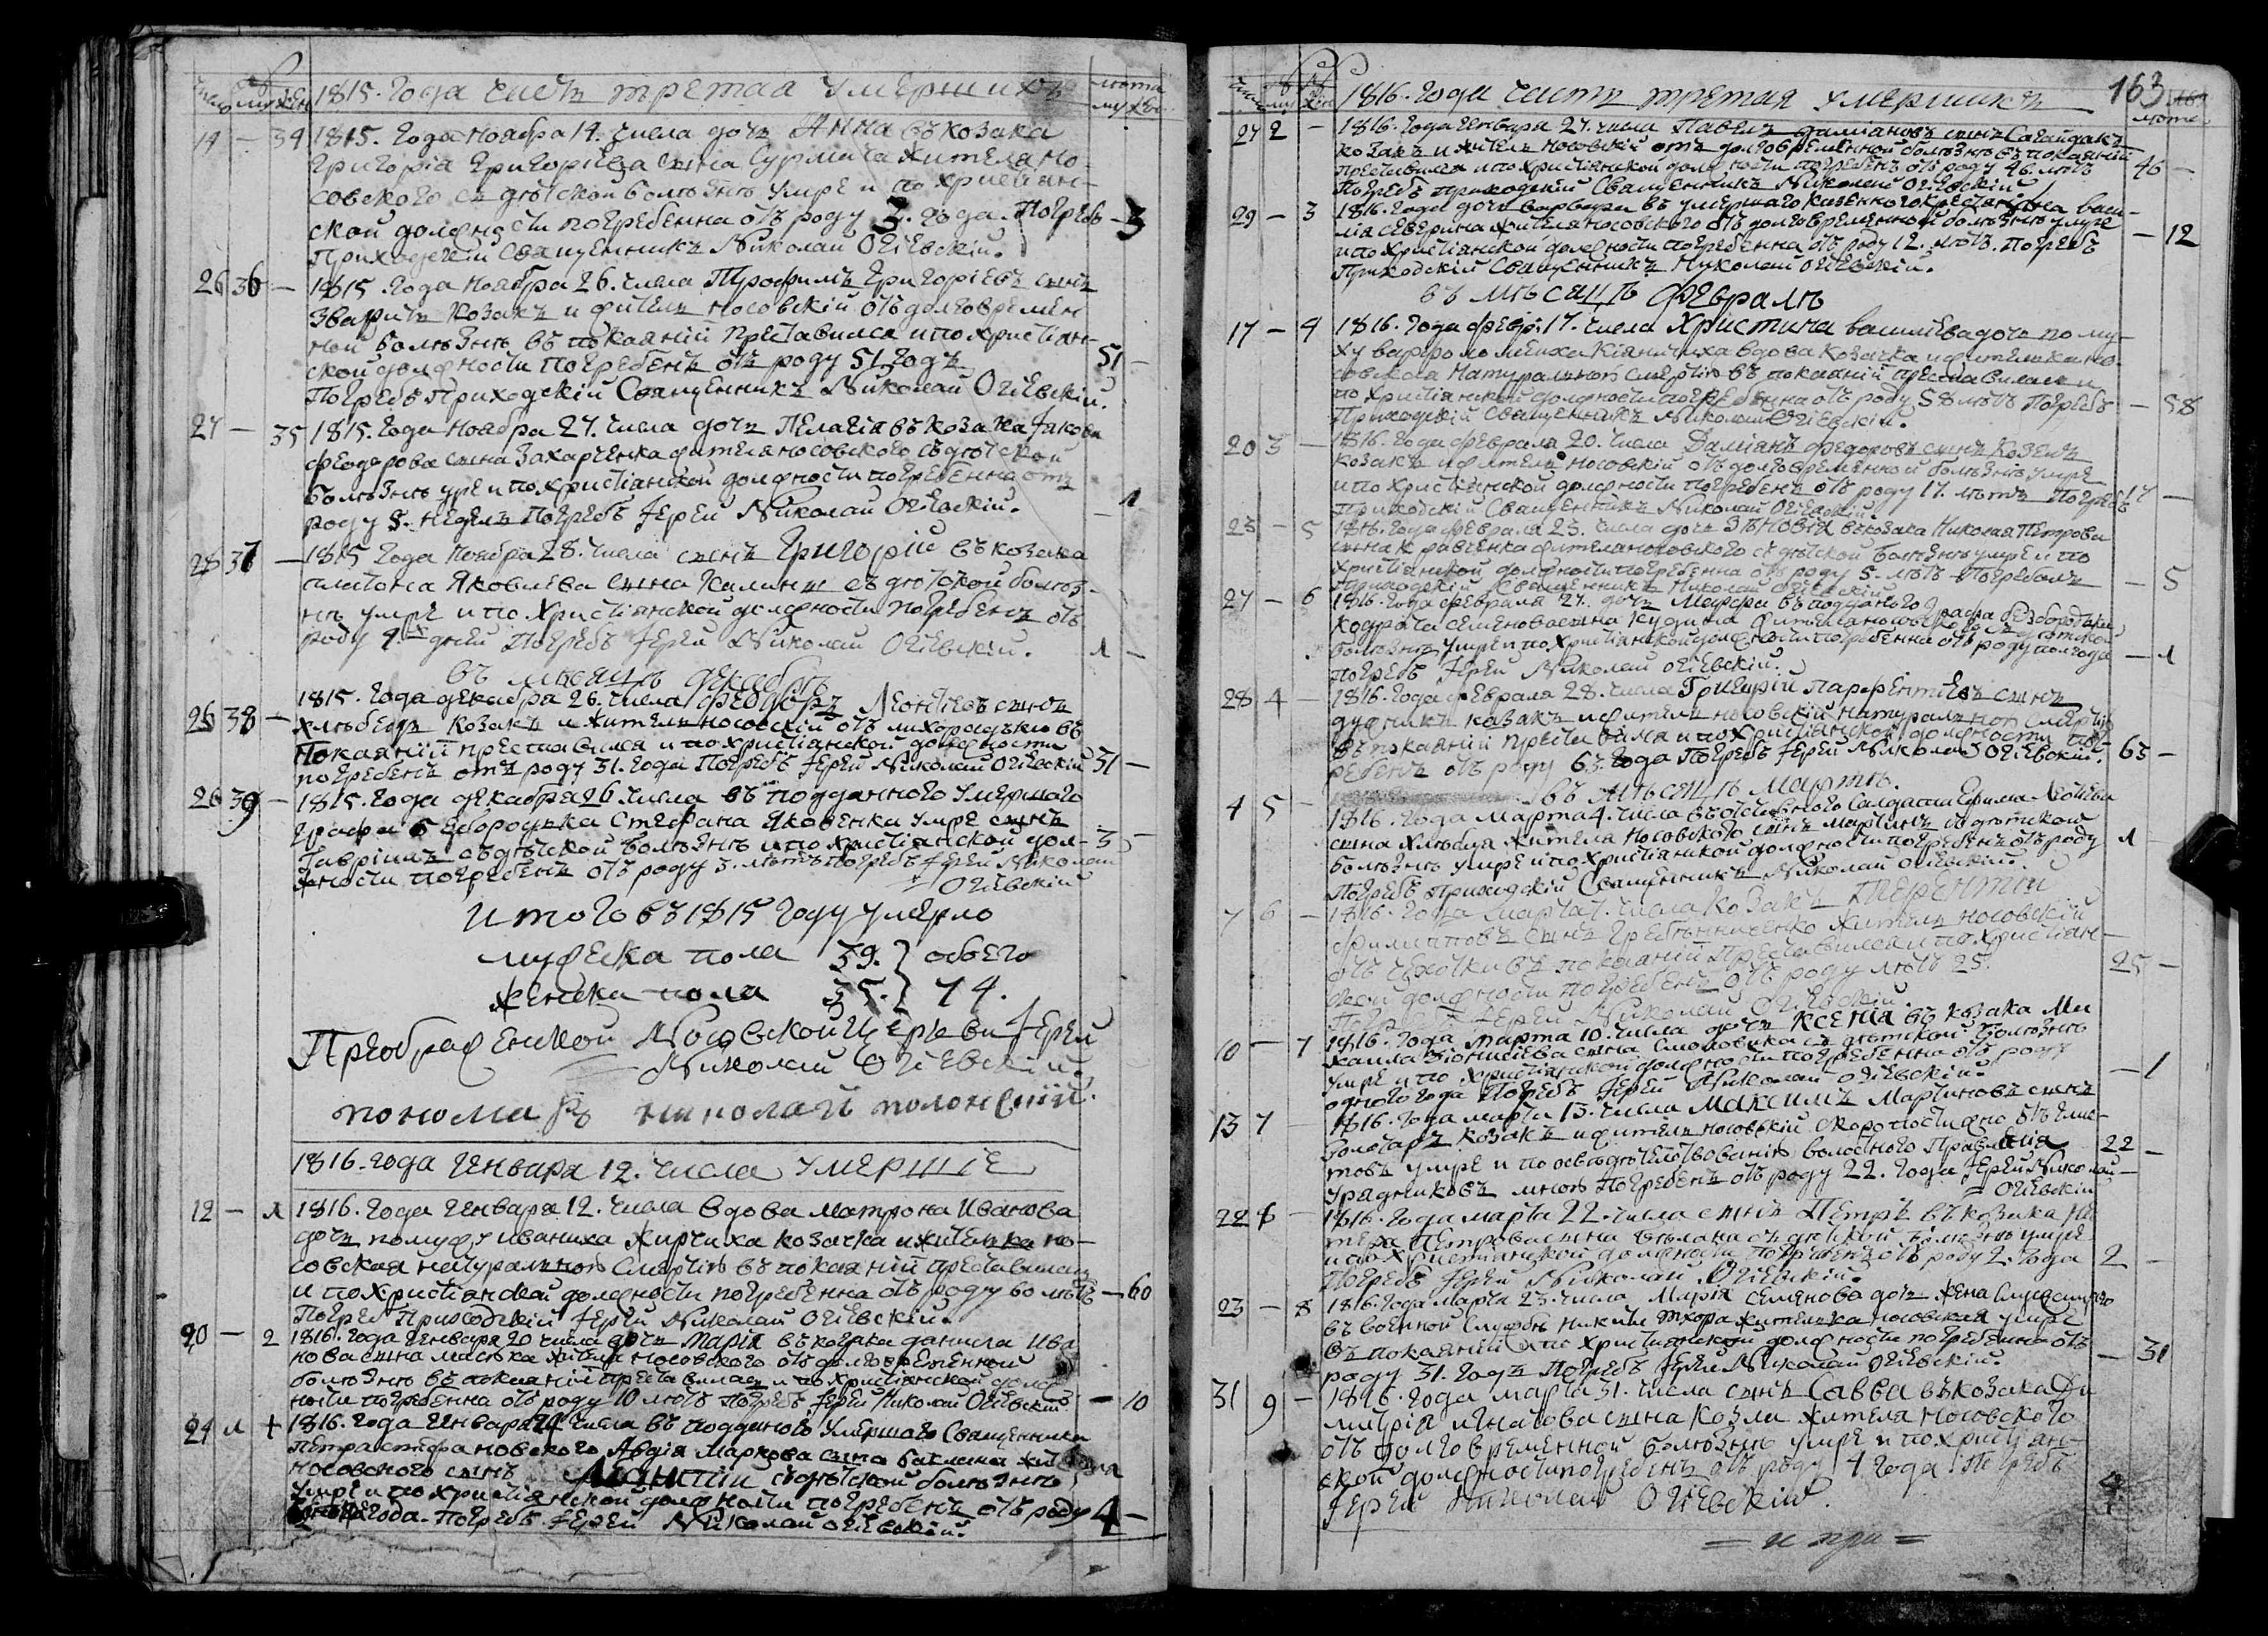 1815. Года часть третая умершихъ
лѣта
14 — 34 1815. Года Ноября 14. числа дочь Анна въ козака
Григорія Григоріева сына Сурмача жителя Но-
совского съ дѣтской болѣзнѣ умре и по христіян-
ской должности погребенна отъ роду 3. года. Погребъ — 3
Приходскій Священникъ Николай Огіевскій.
26 36 — 1815. Года Ноября 26. числа Трофимъ Григоріевъ сынъ
козакъ и житель Носовскій отъ долговремен
ной болѣзнѣ въ покаяніи преставился и по христіян-
ской должности погребенъ отъ роду 51. годъ 51 —
Погребъ Приходскій Священникъ Николай Огіевскій.
27 — 35 1815. Года Ноября 27. числа дочь Пелагія въ козака Іакова
Феодорова сына Захарченка жителя носовского съ дѣтской
болѣзнѣ умре и по христіанской должности погребенна отъ
роду 5. недель Погребъ Іерей Николай Огіевскій. — 1
28 37 — 1815 Года Ноября 28. числа сынъ Григорій въ козака
платона Яковлева сына съ дѣтской болѣз-
нѣ умре и по Христіянской должности погребенъ отъ
роду дней Погребъ Іерей Николай Огіевскій. 1 —
въ мѣсяцѣ декабрѣ
26 38 — 1815. Года декабря 26. числа Феодоръ Леонтіевъ сынъ
козакъ и житель носовскій отъ лихорадъки въ
Покаяніи преставился и по христіянской должности
погребенъ отъ роду 31. года Погребъ Іерей Николай Огіевскій 31 —
26 39 — 1815. Года декабря 26 числа въ подданного умершого
Графа Безбородька Стефана Яковенка умре сынъ
Гавріилъ съ дѣтской болѣзнѣ и по христіянской дол- 3 —
жности погребенъ отъ роду 3. лѣтъ погребъ Іерей Николай
Огіевскій
Итого въ 1815 году умерло
мужеска пола 39. обоего
женска пола 35. 74.
Преображенской Носовской Церкви Іерей
Николай Огіевскій.
пономарь николай полонскій.
1816. года Генваря 12. числа умершіе
12 — 1 1816. Года Генваря 12. числа вдова Матрона Иванова
дочь по мужу Иваниха Жирчиха козачка и жителька но-
совская натуральной смертію въ покаяніи преставилась
и по христіанской должности погребенна отъ роду 60 лѣтъ — 60
Погреб Приходскій Іерей Николай Огіевскій.
20 — 2 1816. года Генваря 20 числа дочь Марія въ козака данила Ива
нова сына жителя Носовского отъ долговременной
болѣзнѣ въ покаяніи преставилась и по христіянской долж
ности погребенна отъ роду 10 лѣтъ Погребъ Іерей Николай Огіевскій. — 10
24 1 + 1816. года Генваря 24 числа въ подданого умершаго Священника
Петра Стефановского Авдія Маркова сына жителя
носовского сынъ съ дѣтской болѣзнѣ
умре и по христіянской должности погребенъ отъ роду 4 —
года. Погребъ Іерей Николай Огіевскій.
163
1816. Года часть третая умершихъ
лѣта
27 2 — 1816. Года Генваря 27. числа Павелъ даміановъ сынъ Сагайдакъ
козакъ и житель Носовскій отъ долговременной болѣзнѣ въ покаяніи
преставился и по христіянской должности погребенъ отъ роду 46. лѣтъ 46 —
Погребъ приходскій Священникъ Николай Огіевскій
29 — 3 1816. Года дочь Варвара въ умершого казенного крестянина васи-
лія Северина жителя носовского отъ долговременной болѣзнѣ умре
и по Христіянской должности погребенна отъ роду 12. лѣтъ. погребъ — 12
Приходскій Священникъ Николай Огіевскій.
въ мѣсяцѣ Февралѣ
17 — 4 1816. Года февр: 17. числа Христина василіева дочь по му-
жу вдова козачка и жителька но-
совская натуральной смертію въ покаяніи преставилась и
по христіянской должности погребенна отъ роду 58 лѣтъ Погребъ — 58
Приходскій Священникъ Николай Огіевскій.
20 3 — 1816. Года февраля 20. числа Даміанъ федоровъ сынъ Козелъ
козакъ и житель носовскій отъ долговременной болѣзнѣ умре
и по христіянской должности погребенъ отъ роду 17. лѣтъ погребъ 17 —
приходскій Священникъ Николай Огіевскій.
23 — 5 1816. Года февраля 23. числа дочь Зѣновія въ козака Николая Петрова
сына Кравченка жителя носовского съ дѣтской болѣзнѣ умре и по
христіянской должности погребенна отъ роду 5. лѣтъ Погребалъ — 5
приходскій Священникъ Николай Огіевскій
27 — 6 1816. Года февраля 27. дочь Марфа въ подданого Графа безбородька
кодрата семенова сына жителя носовского съ дѣтской
болѣзнѣ умре и по христіянской должности погребенна отъ роду полгода — 1
погребъ Іерей Николай Огіевскій.
28 4 — 1816. Года февраля 28. числа Григорій Парфентіевъ сынъ
дужникъ казакъ и житель носовскій натуральной смертію
въ покаяніи преставился и по христіянской должности пог-
ребенъ отъ роду 63. Года Погребъ Іерей Николай Огіевскій. 63 —
въ мѣсяцѣ Мартѣ.
4 5 — 1816. Года марта 4. числа въ отставного салдата Ефима Леонтіева
сына жителя Носовского сынъ Мартинъ съ дѣтской
болѣзнѣ умре и по христіянской должности погребенъ отъ роду 1 —
погребъ приходскій Священникъ Николай Огіевскій.
7 6 — 1816. Года Марта 7. числа козакъ Терентій
филиповъ сынъ Гребѣнниченко житель носовскій
отъ чехотки въ покаяніи преставился и по христіян-
ской должности погребенъ отъ роду лѣтъ 25. 25 —
Погребъ Іерей Николай Огіевскій.
10 — 7 1816. Года марта 10. числа дочь Ксенія въ козака Ми
хаила Діонисіева сына съ дѣтской болѣзнѣ
умре и по христіянской должности погребенна отъ роду
одного года Погребъ Іерей Николай Огіевскій. — 1
13 7 — 1816. Года марта 13. числа Максимъ Мартиновъ сынъ
Золотаръ козакъ и житель носовскій скоропостижно отъ глис-
товъ умре и по освѣдѣтелствованію волостного Правленія 22 —
урядниковъ мною погребенъ отъ роду 22. Года Іерей Николай
Огіевскій
22 8 — 1816. Года марта 22. числа сынъ Петръ въ козака Пе
тра Петрова сына съ дѣтской болѣзнѣ умре
и по христіянской должности погребенъ отъ роду 2. года 2 —
Погребъ Іерей Николай Огіевскій.
23 — 8 1816. Года марта 23. числа Марія Семенова дочь жена
въ военной службѣ Никити Тхора жителька носовская умре
въ покаяніи и по христіянской должности погребенна отъ
роду 31. годъ Погребъ Іерей Николай Огіевскій. — 31
31 9 — 1816. Года марта 31. числа сынъ Савва въ козака Ди
митрія Игнатова сына Козла жителя Носовского
отъ долговременной болѣзнѣ умре и по христіян-
ской должности погребенъ отъ роду 4. года. Погребъ 4
Іерей Николай Огіевскій.
= и при =